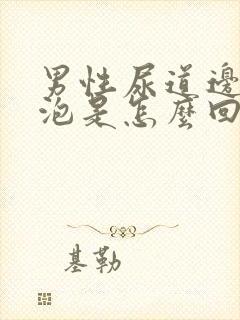 男性尿道邊
泡是怎麼回
基勒